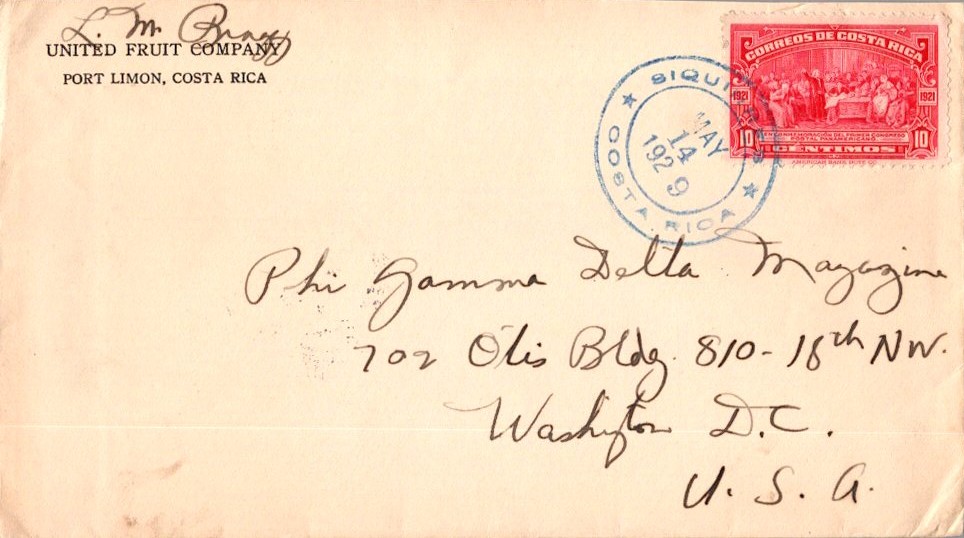 L. M. Bragg
UNITED FRUIT COMPANY
PORT LIMON, COSTA RICA
CORREOS DE COSTA RICA
1921 1921
CONMEMORACIÓN DEL PRIMER CONGRESO
POSTAL PANAMERICANO
10 CENTIMOS 10
AMERICAN BANK NOTE CO.
SIQUIRRES
MAY
14
1929
COSTA RICA
Phi Gamma Delta Magazine
702 Otis Bldg. 810-18th NW.
Washington D.C.
U. S. A.